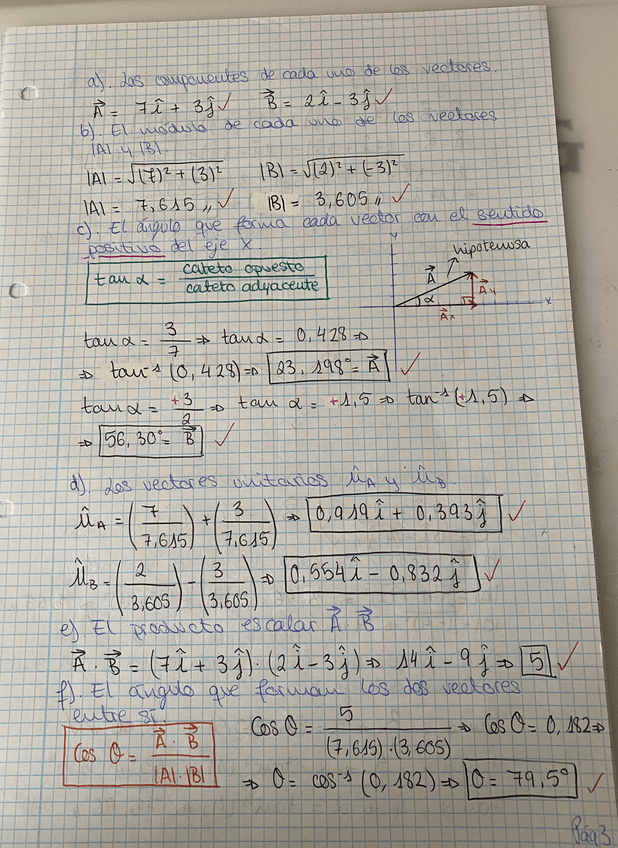 a). Las componentes de cada uno de los vectores.
A⃗ = 7î + 3ĵ ✓ B⃗ = 2î - 3ĵ ✓
b). El módulo de cada uno de los vectores
|A| y |B|.
|A| = √((7)² + (3)²) |B| = √((2)² + (-3)²)
|A| = 7,615 ,, ✓ |B| = 3,605 ,, ✓
c). El ángulo que forma cada vector con el sentido
positivo del eje X.
tan α = cateto opuesto / cateto adyacente
y
hipotenusa
A⃗
α
A⃗y
A⃗x
x
tan α = 3/7 ⇒ tan α = 0,428 ⇒
⇒ tan⁻¹ (0,428) ⇒ 23,198° = A⃗ ✓
tan α = +3/2 ⇒ tan α = +1,5 ⇒ tan⁻¹ (+1,5) ⇒
⇒ 56,30° = B⃗ ✓
d). Los vectores unitarios û_A y û_B.
û_A = (7/7,615) + (3/7,615) ⇒ 0,919î + 0,393ĵ ✓
û_B = (2/3,605) - (3/3,605) ⇒ 0,554î - 0,832ĵ ✓
e) El producto escalar A⃗ · B⃗
A⃗ · B⃗ = (7î + 3ĵ) · (2î - 3ĵ) ⇒ 14î - 9ĵ ⇒ 5 ✓
f). El ángulo que forman los dos vectores
entre sí.
Cos θ = A⃗ · B⃗ / |A|·|B|
Cos θ = 5 / (7,615)·(3,605) ⇒ Cos θ = 0,182 ⇒
⇒ θ = cos⁻¹ (0,182) ⇒ θ = 79,5° ✓
Pág 3